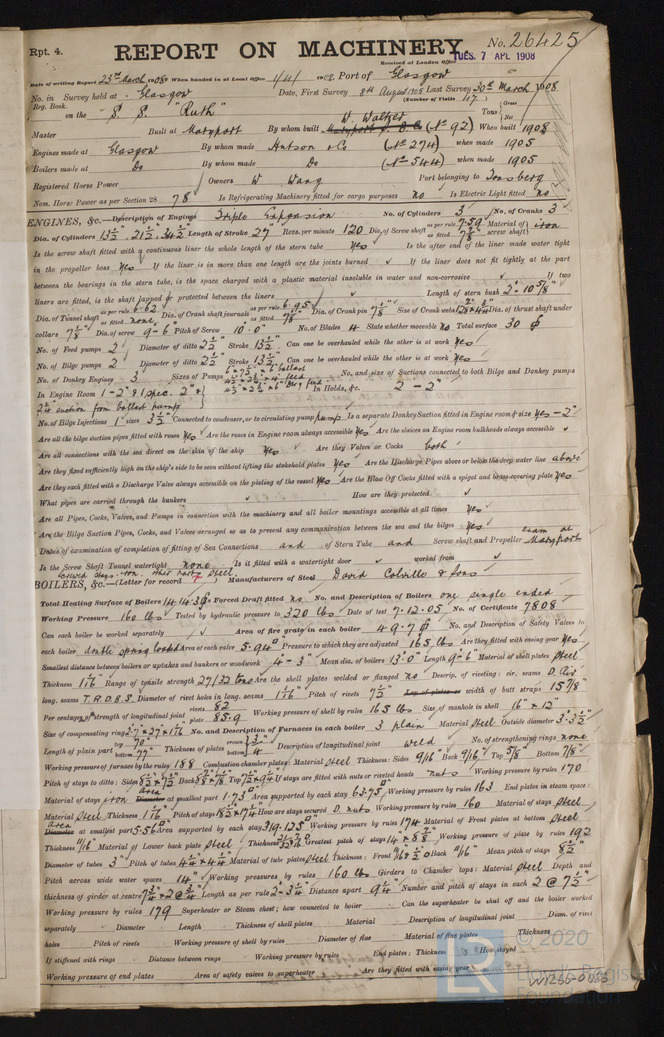 Rpt. 4.
REPORT ON MACHINERY
No. 26425
Received at London Office TUES. 7 APL 1908
Date of writing Report 25th March 1908 When handed in at Local Office 1/4/ 1908 Port of Glasgow
No. in Survey held at Glasgow Date, First Survey 8th August 1905 Last Survey 30th March 1908
Reg. Book. (Number of Visits 117)
on the S. S. "Ruth" Tons Gross Net
W. Walker
Master Built at Maryport By whom built (No 92) When built 1908
Engines made at Glasgow By whom made Hutson & Co (No 274) when made 1905
Boilers made at Do By whom made Do (No 544) when made 1905
Registered Horse Power Owners W Wang Port belonging to Tonsberg
Nom. Horse Power as per Section 28 78 Is Refrigerating Machinery fitted for cargo purposes no Is Electric Light fitted no
ENGINES, &c.—Description of Engines Triple Expansion No. of Cylinders 3 No. of Cranks 3
Dia. of Cylinders 13½", 21½", 34½" Length of Stroke 27" Revs. per minute 120 Dia. of Screw shaft as per rule 7.59 as fitted 7⅞" Material of screw shaft iron
Is the screw shaft fitted with a continuous liner the whole length of the stern tube yes Is the after end of the liner made water tight
in the propeller boss yes If the liner is in more than one length are the joints burned If the liner does not fit tightly at the part
between the bearings in the stern tube, is the space charged with a plastic material insoluble in water and non-corrosive If two
liners are fitted, is the shaft lapped or protected between the liners Length of stern bush 2'-10⅝"
Dia. of Tunnel shaft as per rule 6.62 as fitted none Dia. of Crank shaft journals as per rule 6.95 as fitted 7⅛" Dia. of Crank pin 7⅛" Size of Crank webs Dia. of thrust shaft under
collars 7⅛" Dia. of screw 9-6" Pitch of Screw 10.0" No. of Blades 4 State whether moveable no Total surface 30
No. of Feed pumps 2 Diameter of ditto 2½" Stroke 13½" Can one be overhauled while the other is at work yes
No. of Bilge pumps 2 Diameter of ditto 2½" Stroke 13½" Can one be overhauled while the other is at work yes
No. of Donkey Engines 3 Sizes of Pumps No. and size of Suctions connected to both Bilge and Donkey pumps
In Engine Room 1-2" & 1 spec. 2" In Holds, &c. 2-2"
2¼ suction from ballast pump
No. of Bilge Injections 1 sizes 3½" Connected to condenser, or to circulating pump pump Is a separate Donkey Suction fitted in Engine room & size yes-2"
Are all the bilge suction pipes fitted with roses yes Are the roses in Engine room always accessible yes Are the sluices on Engine room bulkheads always accessible
Are all connections with the sea direct on the skin of the ship yes Are they Valves or Cocks both
Are they fixed sufficiently high on the ship's side to be seen without lifting the stokehold plates yes Are the Discharge Pipes above or below the deep water line above
Are they each fitted with a Discharge Valve always accessible on the plating of the vessel yes Are the Blow Off Cocks fitted with a spigot and brass covering plate yes
What pipes are carried through the bunkers How are they protected.
Are all Pipes, Cocks, Valves, and Pumps in connection with the machinery and all boiler mountings accessible at all times yes
Are the Bilge Suction Pipes, Cocks, and Valves arranged so as to prevent any communication between the sea and the bilges yes
Dates of examination of completion of fitting of Sea Connections and of Stern Tube and Screw shaft and Propeller exam at Maryport
Is the Screw Shaft Tunnel watertight none Is it fitted with a watertight door worked from
BOILERS, &c.—(Letter for record) Manufacturers of Steel David Colville & Sons
Total Heating Surface of Boilers 1414.3 Forced Draft fitted no No. and Description of Boilers one single ended
Working Pressure 160 lbs Tested by hydraulic pressure to 320 lbs Date of test 7-12-05 No. of Certificate 7808
Can each boiler be worked separately Area of fire grate in each boiler 49.7 No. and Description of Safety Valves to
each boiler double spring loaded Area of each valve 5.94" Pressure to which they are adjusted 165 lbs Are they fitted with easing gear yes
Smallest distance between boilers or uptakes and bunkers or woodwork 4'-3" Mean dia. of boilers 13'0" Length 9-6" Material of shell plates steel
Thickness 1 1/16" Range of tensile strength 27/32 tons Are the shell plates welded or flanged no Descrip. of riveting: cir. seams D. riv
long. seams T.R.D.B.S. Diameter of rivet holes in long. seams 1 1/16" Pitch of rivets 7½" Lap of plates or width of butt straps 15⅞"
Per centages of strength of longitudinal joint rivets 82 plate 85.9 Working pressure of shell by rules 165 lbs Size of manhole in shell 16" x 12"
Size of compensating ring No. and Description of Furnaces in each boiler 3 plain Material steel Outside diameter 3'-3½"
Length of plain part top 70" bottom 77" Thickness of plates Description of longitudinal joint weld No. of strengthening rings none
Working pressure of furnace by the rules 188 Combustion chamber plates: Material steel Thickness: Sides 9/16" Back 9/16" Top 5/8" Bottom 7/8"
Pitch of stays to ditto: Sides Back Top If stays are fitted with nuts or riveted heads nuts Working pressure by rules 170
Material of stays iron area at smallest part 1.73 Area supported by each stay 63.75 Working pressure by rules 163 End plates in steam space:
Material steel Thickness 1 1/16" Pitch of stays How are stays secured D. nuts Working pressure by rules 160 Material of stays steel
area at smallest part 5.56 Area supported by each stay 319.125 Working pressure by rules 174 Material of Front plates at bottom steel
Thickness 11/16" Material of Lower back plate steel Thickness Greatest pitch of stays Working pressure of plate by rules 192
Diameter of tubes 3" Pitch of tubes Material of tube plates steel Thickness: Front Back 11/16" Mean pitch of stays 8½"
Pitch across wide water spaces 14" Working pressures by rules 160 lbs Girders to Chamber tops: Material steel Depth and
thickness of girder at centre Length as per rule 2'-3¾" Distance apart 9¼" Number and pitch of stays in each 2 @ 7½"
Working pressure by rules 179 Superheater or Steam chest; how connected to boiler Can the superheater be shut off and the boiler worked
separately Diameter Length Thickness of shell plates Material Description of longitudinal joint Diam. of rivet
holes Pitch of rivets Working pressure of shell by rules Diameter of flue Material of flue plates Thickness
If stiffened with rings Distance between rings Working pressure by rules End plates: Thickness How stayed
Working pressure of end plates Area of safety valves to superheater Are they fitted with easing gear
© 2020
Lloyd's Register
Foundation
W1266-0086